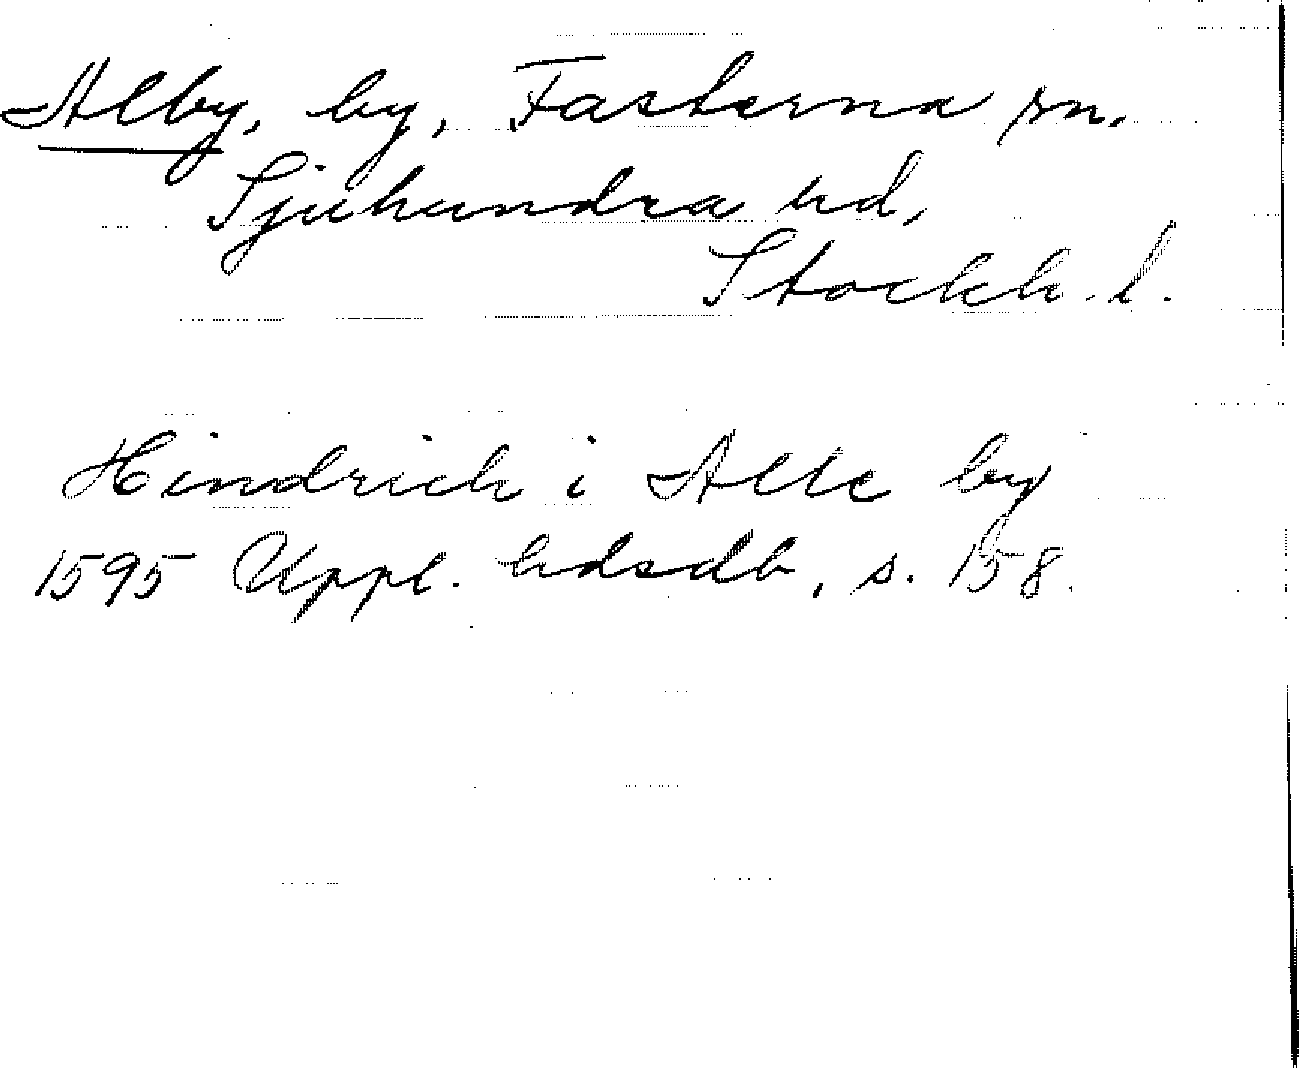 Alby, by, Fasterna sn.
Sjuhundra hd,
Stockh. l.
Hindrich i Alle by
1595 Uppl. hdsdb, s. 158.